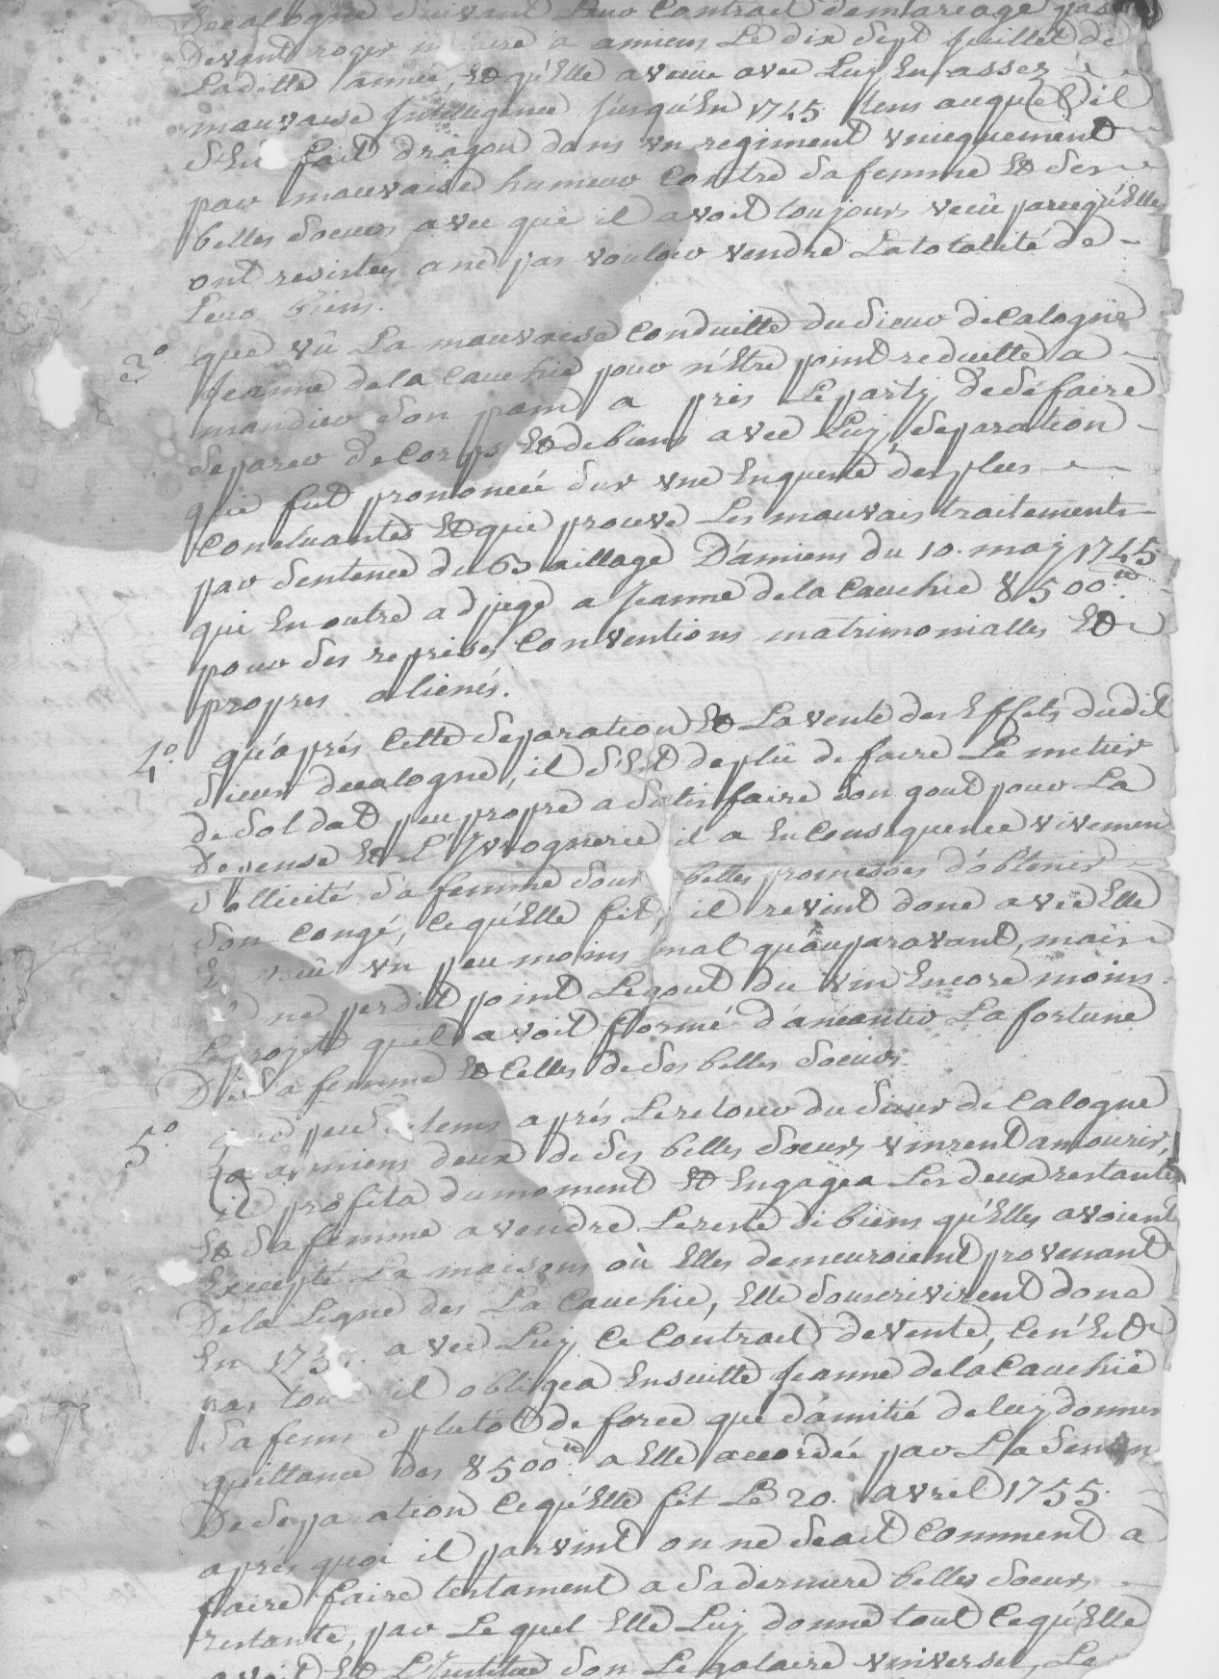 decalogne suivant Leur Contract demariage passé
devant roger notaire a amiens Le dix Sept Juillet de
Laditte année, Et qu'Elle a vecue avec Luy En assez
mauvaise Intelligence Jusqu'En 1745 tems auquel il
s'Est fait dragon dans un regiment uniequement
par mauvaise humeur Contre Sa femme Et Ses
belles Soeurs avec qui il avoit toujours vecu parcequ'Elles
ont resistez a ne pas vouloir vendre La totalité de
Leur biens.
3° que vû La mauvaise Conduitte du Sieur de Calogne
Jeanne de la Cauchie pour n'Etre point reduitte a
mandier Son pain a pris Le party de Se faire
Separer de Corps Et de biens avec Luy, Separation
qui fut prononcée Sur une Enqueste des plus
Concluantes Et qui prouve Les mauvais traitements
par Sentence du Baillage D'amiens du 10. may 1745
qui En outre adjuge a Jeanne de la Cauchie 8500 tt
pour Ses reprises Conventions matrimonialles Et
propres alienés.
4° qu'aprés Cette Separation Et La vente des Effets dudit
Sieur decalogne, il S'Est deplû de faire Le metier
de Soldat peu propre a Satisfaire Son gout pour La
Depense Et L'Yvrognerie il a En Consequence vivement
Sollicité Sa femme Sous belles promesses d'obtenir
Son Congé, Ce qu'Elle fit, il revint donc avec Elle
Et vecu un peu moins mal qu'auparavant, mais
il ne perdit point Le gout du vin Encore moins
Le projet quil avoit formé d'aneantir La fortune
De Sa femme Et Celles de Ses belles Soeurs.
5° que peu de tems aprés Le retour du Sieur de Calogne
a amiens deux de Ses belles Soeurs vinrent a mourir,
il profita du moment Et Engagea Les deux restantes
Et Sa femme a vendre Le reste de biens qu'Elles avoient
Excepté La maison où Elles demeuroient provenant
De la Ligne des La Cauchie, Elle Souscrivirent donc
En 175 avec Luy Ce Contract de vente, Ce n'Est
pas tout il obligea Ensuitte Jeanne de la Cauchie
Sa femme plutôt de force que d'amitié de luy donner
quittance des 8500 tt a Elle accordée par La Senten
De Separation Ce qu'Elle fit Le 20. avril 1755
aprés quoi il parvint on ne Scait Comment a
faire faire testament a Sa derniere belles Soeurs
restante, par Le quel Elle Luy donne tout Ce qu'Elle
avoit Et L'Institue Son Legataire universel, Le